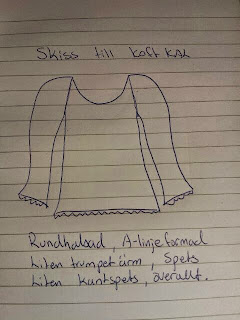 Skiss till koft KAL
Rundhalsad, A-linjeformad
Liten trumpetärm, Spets
Liten kantspets, överallt.